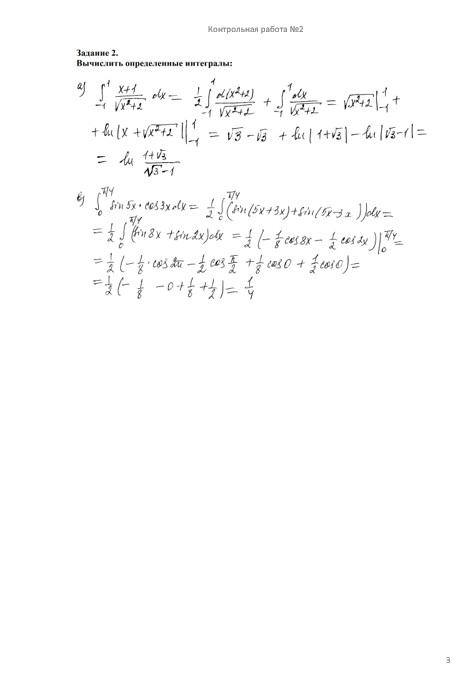 Контрольная работа №2
Задание 2.
Вычислить определенные интегралы:
а) ∫₋₁¹ (x+1)/√(x²+2) dx = 1/2 ∫₋₁¹ d(x²+2)/√(x²+2) + ∫₋₁¹ dx/√(x²+2) = √(x²+2) |₋₁¹ +
+ ln|x + √(x²+2)| |₋₁¹ = √3 − √3 + ln|1+√3| − ln|√3−1| =
= ln (1+√3)/(√3−1)
б) ∫₀^(π/4) sin5x · cos3x dx = 1/2 ∫₀^(π/4) (sin(5x+3x) + sin(5x−3x)) dx =
= 1/2 ∫₀^(π/4) (sin8x + sin2x) dx = 1/2 (−1/8 cos8x − 1/2 cos2x) |₀^(π/4) =
= 1/2 (−1/8 · cos2π − 1/2 cos π/2 + 1/8 cos0 + 1/2 cos0) =
= 1/2 (−1/8 − 0 + 1/8 + 1/2) = 1/4
3